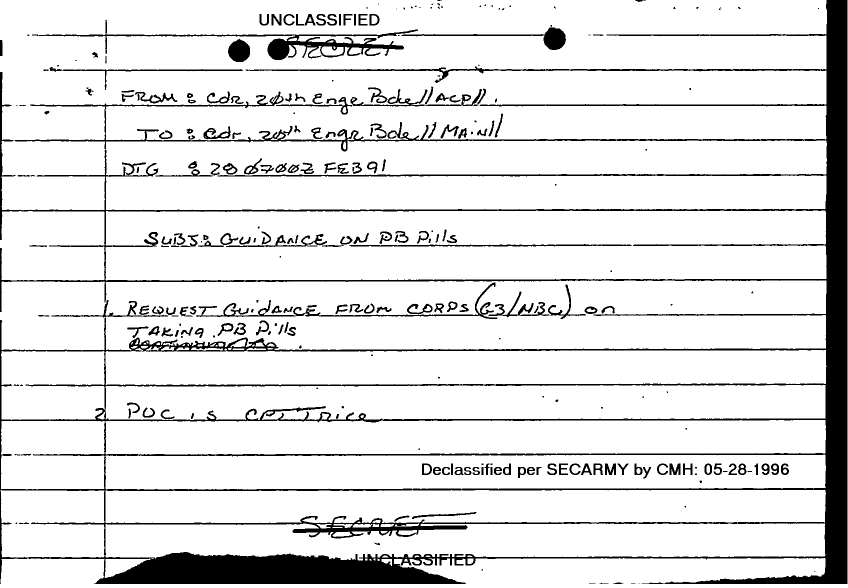 UNCLASSIFIED
SECRET
FROM : Cdr, 20th Engr Bde//ACP//.
TO : Cdr, 20th Engr Bde//MAIN//
DTG : 280700Z FEB91
SUBJ: GUIDANCE ON PB Pills
1. REQUEST GUIDANCE FROM CORPS (G3/NBC) on
TAKING PB Pills
2 POC is CPT Trice
Declassified per SECARMY by CMH: 05-28-1996
SECRET
UNCLASSIFIED